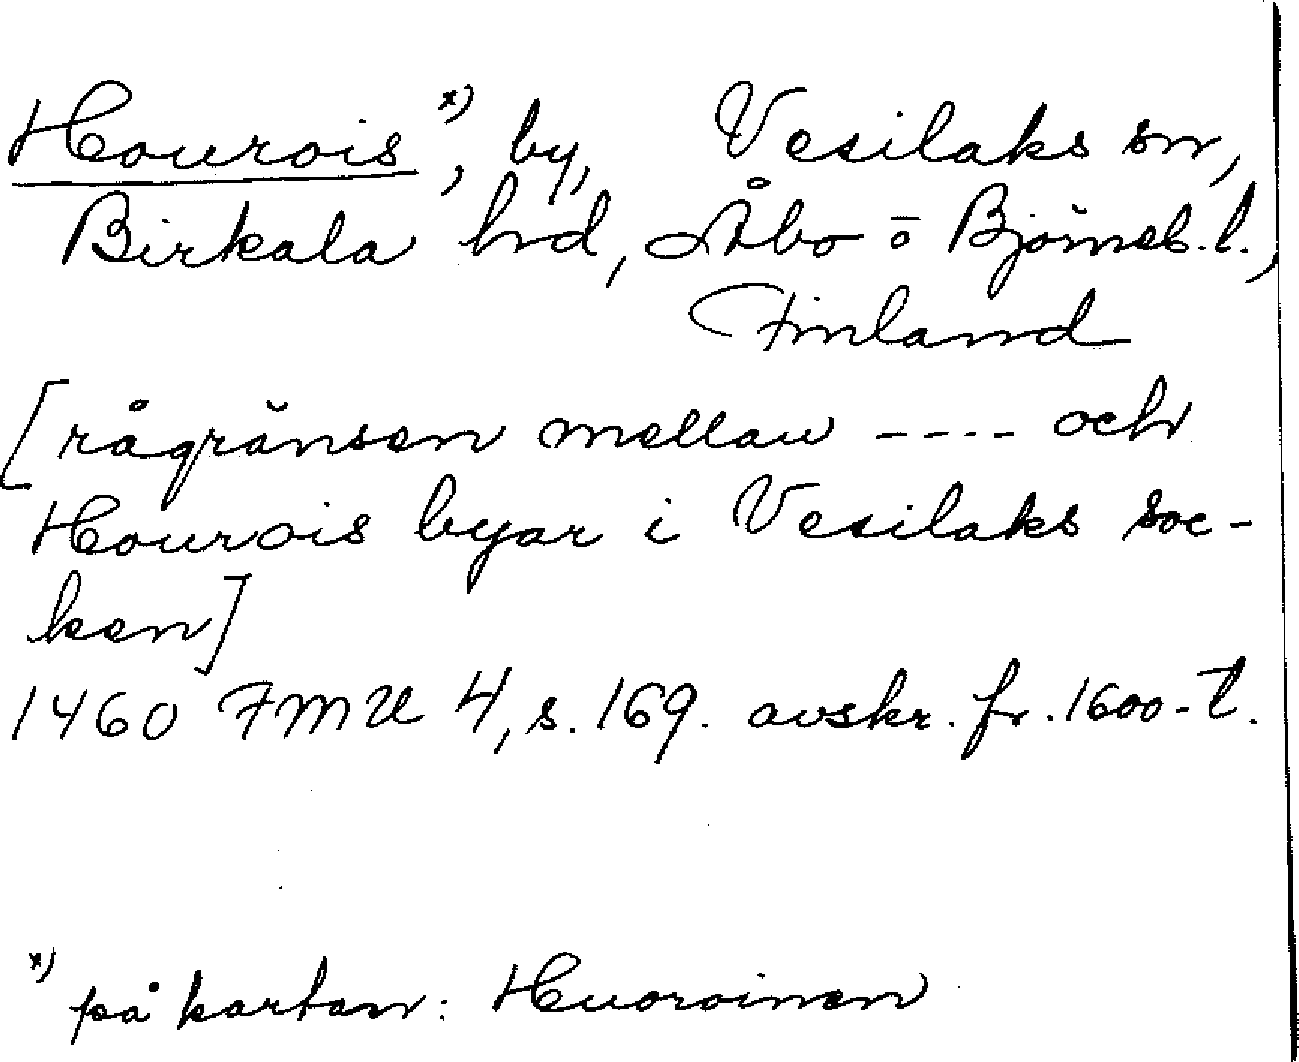 Hourois x), by, Vesilaks sn,
Birkala hd, Åbo o Björneb. l.,
Finland
[rågränsen mellan ---- och
Hourois byar i Vesilaks soc-
ken]
1460 FMU 4, s. 169. avskr. fr. 1600-t.
x) på kartan: Huoroinen